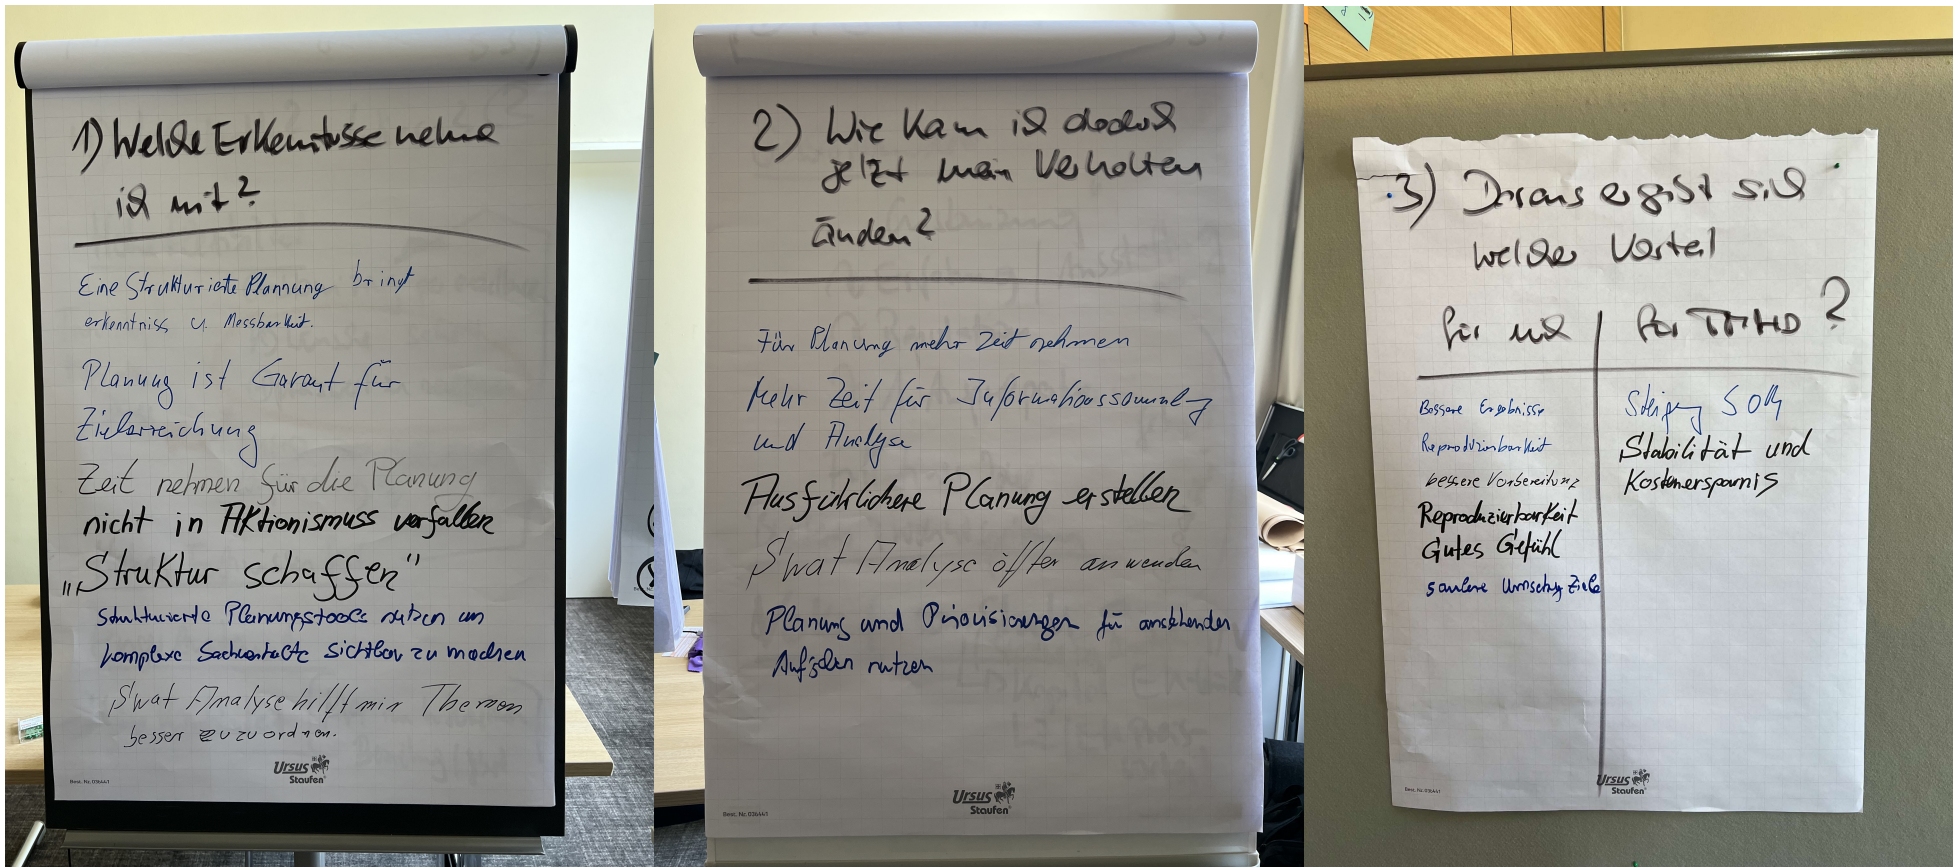 1) Welche Erkenntnisse nehme
ich mit?
Eine Strukturierte Plannung bringt
erkenntniss u. Messbarkeit.
Planung ist Garant für
Zielerreichung
Zeit nehmen für die Planung
nicht in Aktionismuss verfallen
„Struktur schaffen"
strukturierte Planungstools nutzen um
komplexe Sachverhalte sichtbar zu machen
Swat Analyse hilft mir Themen
besser zuzuordnen.
Ursus
Staufen
Best. Nr. 03644/1
2) Wie kann ich dadurch
jetzt mein Verhalten
ändern?
Für Planung mehr Zeit nehmen
Mehr Zeit für Informationssammlung
und Analyse
Ausführlichere Planung erstellen
Swat Analyse öffter anwenden
Planung und Priorisierungen für anstehenden
Aufgaben nutzen
Ursus
Staufen
Best. Nr. 03644/1
3) Daraus ergibt sich
welcher Vorteil
für mich
Bessere Ergebnisse
Reproduzierbarkeit
bessere Vorbereitung
Reproduzierbarkeit
Gutes Gefühl
saubere Umsetzung Ziele
für TMHD ?
Steigerung
Stabilität und
Kostenersparnis
Ursus
Staufen
Best. Nr. 03644/1